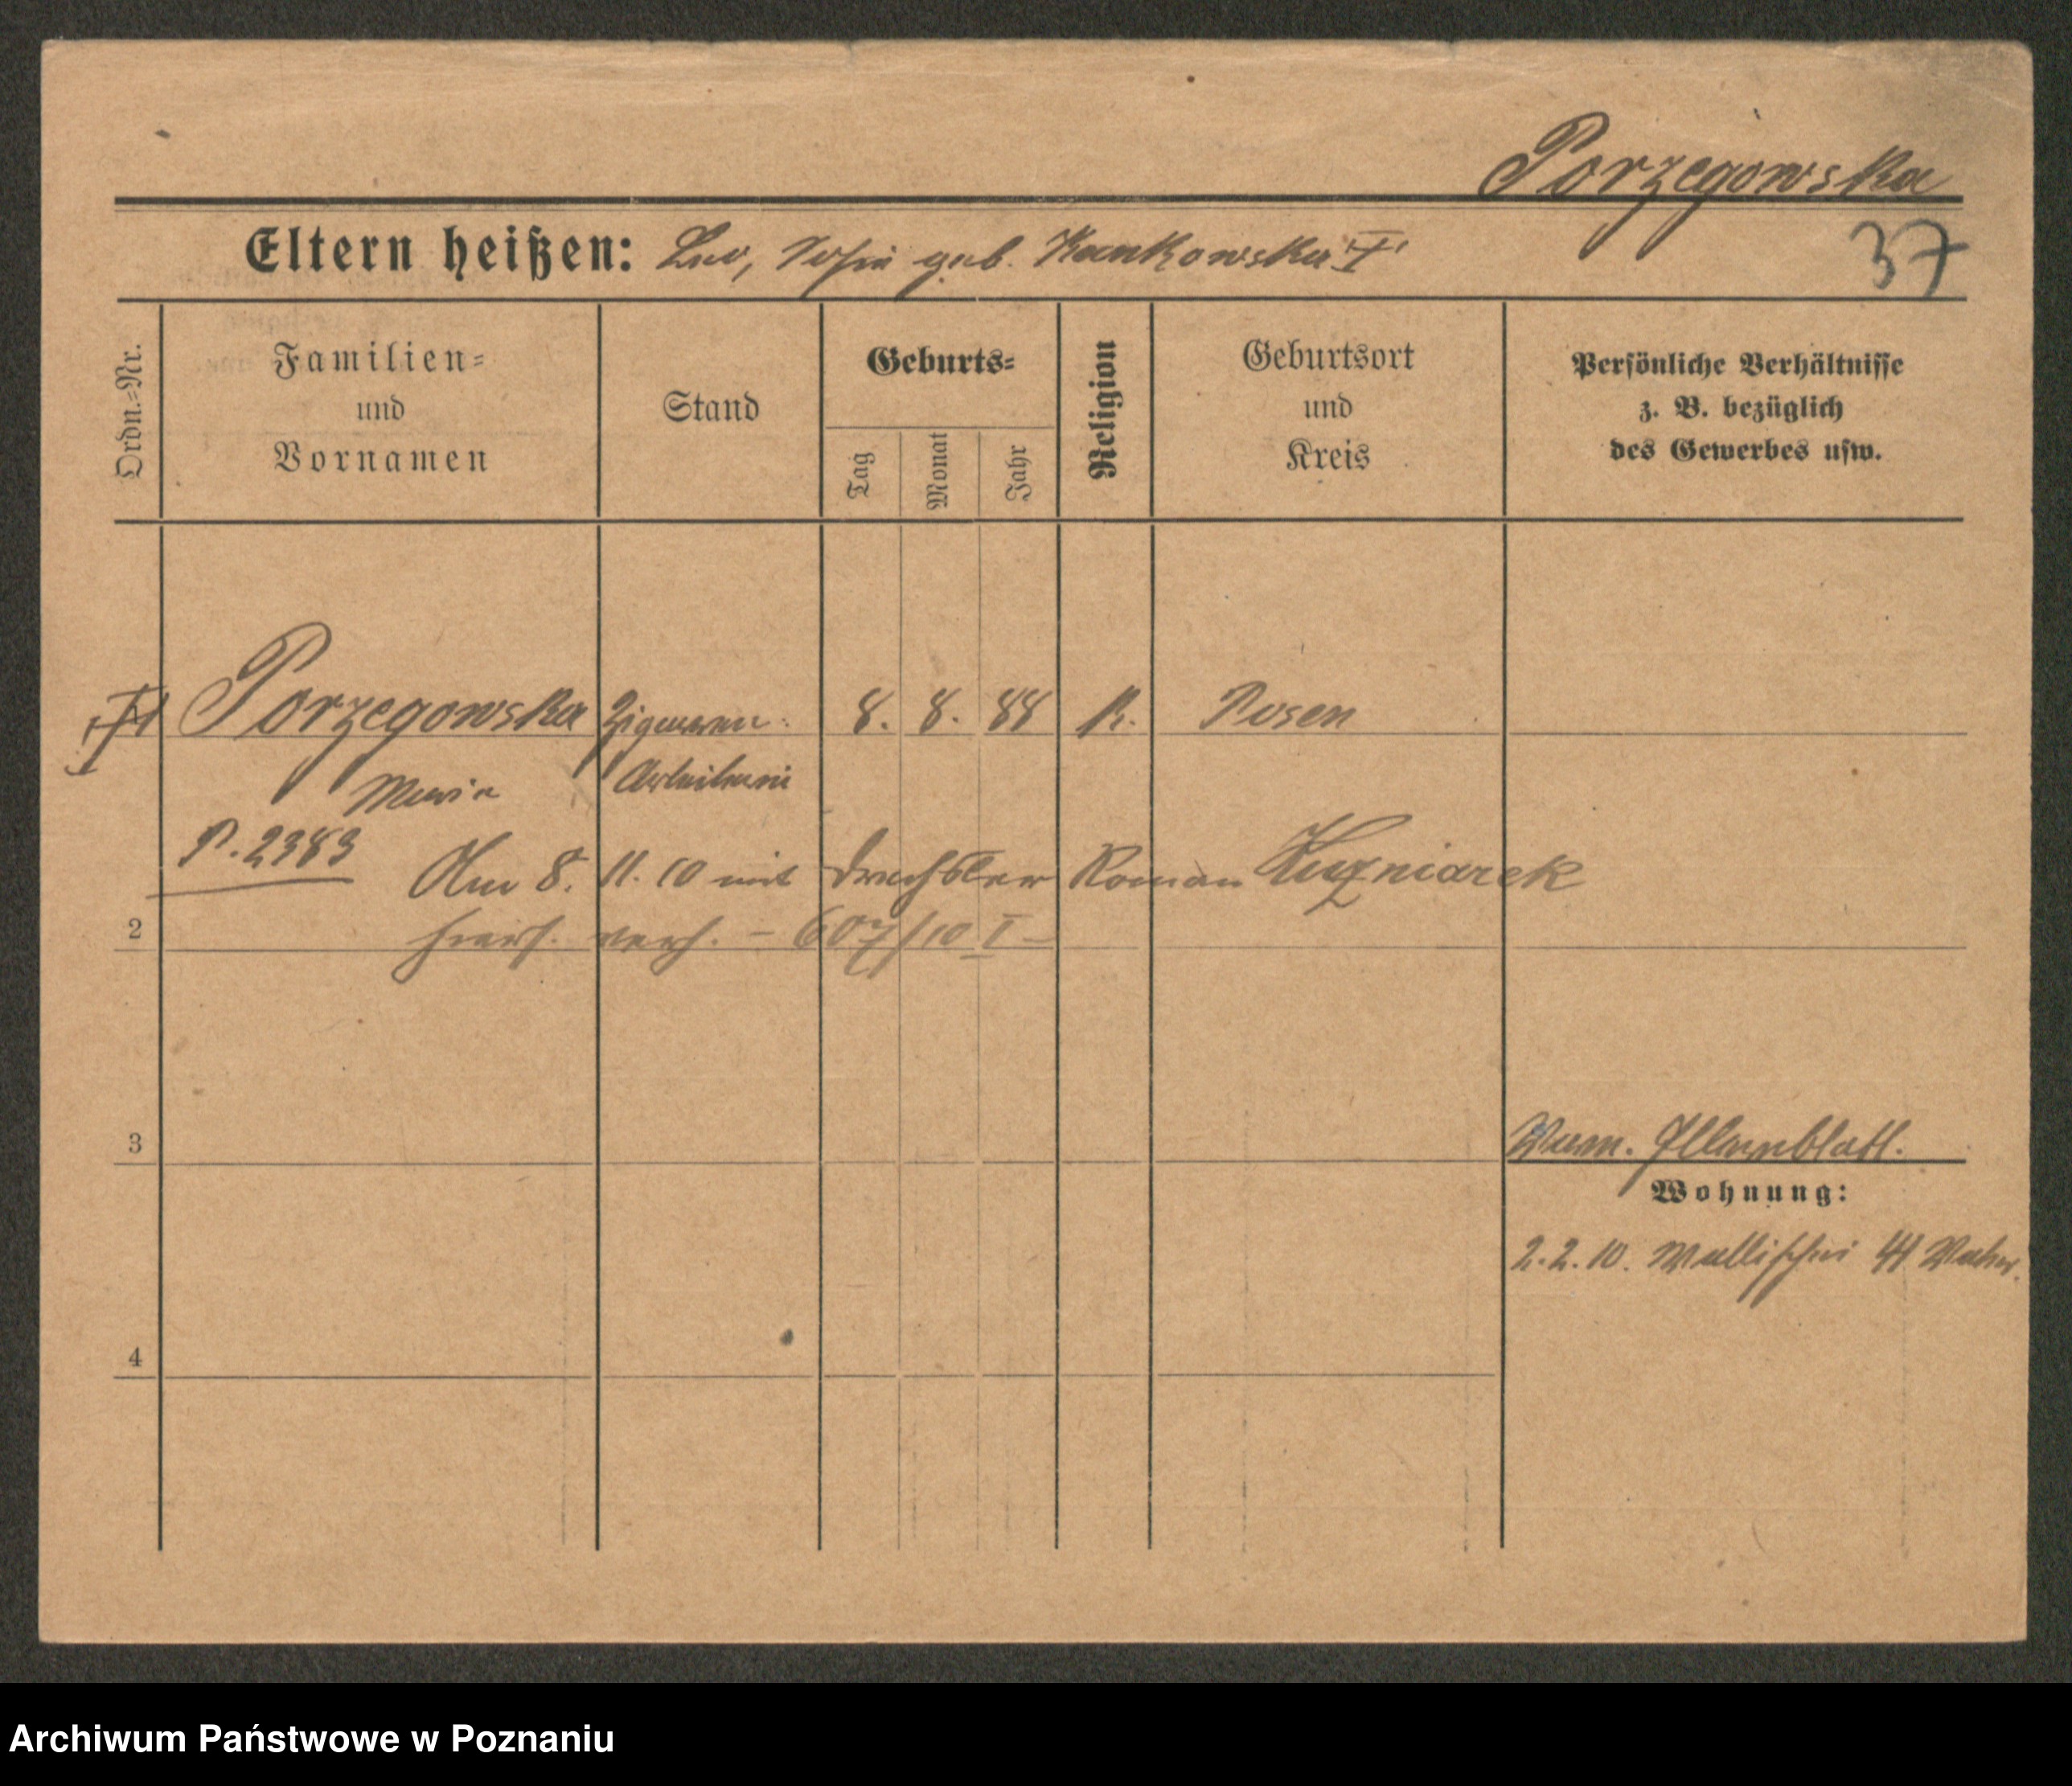 Porzegowska
Eltern heißen: Leo, Sofie geb. Kankowska
37
Ordn.-Nr.
Familien- und Vornamen
Stand
Geburts-
Tag
Monat
Jahr
Religion
Geburtsort und Kreis
Persönliche Verhältnisse z. B. bezüglich des Gewerbes usw.
1 Porzegowska Zigarren- 8. 8. 88 K. Posen
Maria Arbeiterin
P. 2383
Am 8. 11. 10 mit Drechsler Roman Kuzniarek
2
hiers. verh. – 607/10 I –
3
Elternblatt.
Wohnung:
2. 2. 10. Wallischei 41
4
Archiwum Państwowe w Poznaniu